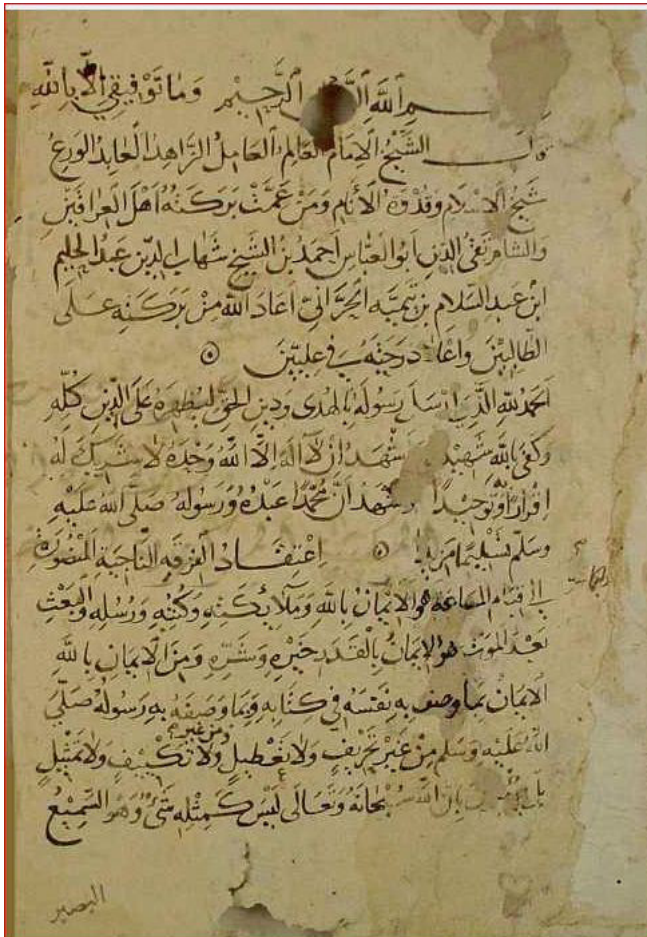 بسم الله الرحمن الرحيم وما توفيقي الا بالله
قال الشيخ الامام العالم العامل الزاهد العابد الورع
شيخ الاسلام وقدوة الأنام ومن عمت بركته اهل العراقين
والشام تقي الدين ابو العباس احمد بن الشيخ شهاب الدين عبد الحليم
ابن عبد السلام بن تيمية الحراني اعاد الله من بركته على
الطالبين واعلا درجته في عليين
الحمد لله الذي ارسل رسوله بالهدى ودين الحق ليظهره على الدين كله
وكفى بالله شهيدا واشهد ان لا اله الا الله وحده لا شريك له
اقرارا به وتوحيدا واشهد أن محمدا عبده ورسوله صلى الله عليه
وسلم تسليما مزيدا اعتقاد الفرقة الناجية المنصورة
الى قيام الساعة هو الايمان بالله وملائكته وكتبه ورسله والبعث
بعد الموت هو الايمان بالقدر خيره وشره ومن الايمان بالله
الايمان بما وصف به نفسه في كتابه وبما وصفه به رسوله صلى
الله عليه وسلم من غير تحريف ولا تعطيل ومن غير تكييف ولا تمثيل
بل يؤمنون بان الله سبحانه وتعالى ليس كمثله شيء وهو السميع
البصير